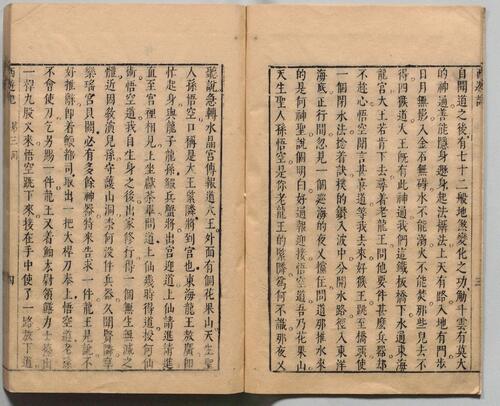 西遊記
三
自聞道之後有七十二般地煞變化之功觔斗雲有莫大
的神通善能隱身遯身起法攝法上天有路入地有門步
日月無影入金石無礙水不能溺火不能焚那些兒去不
得四猴道大王既有此神通我們這鐵板橋下水通東海
龍宮大王若肯下去尋着老龍王問他要件甚麼兵器却
不趁心悟空聞言甚喜道等我去來好猴王跳至橋頭使
一個閉水法捻着訣撲的鑽入波中分開水路徑入東洋
海底正行間忽見一個巡海的夜叉攩住問道那推水來
的是何神聖說個明白好通報迎接悟空道吾乃花果山
天生聖人孫悟空是你老龍王的緊隣為何不識那夜叉
聽說急轉水晶宮傳報道大王外面有個花果山天生聖
人孫悟空口稱是大王緊隣將到宮也東海龍王敖廣即
忙起身與龍子龍孫鰕兵蟹將出宮迎道上仙請進請進
直至宮裡相見上坐獻茶畢問道上仙幾時得道授何仙
術悟空道我自生身之後出家修行得一個無生無滅之
體近因教演兒孫守護山洞柰何沒件兵器久聞賢隣享
樂瑤宮貝闕必有多餘神器特來告求一件龍王見說不
好推辭即着鱖都司取出一把大桿刀奉上悟空道老孫
不會使刀乞另賜一件龍王又着鮊太尉領鱔力士擡出
一桿九股叉來悟空跳下來接在手中使了一路放下道
西遊記　第三回　四